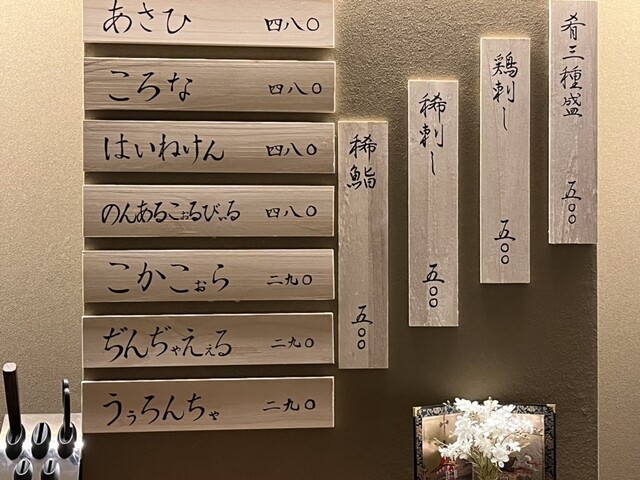 あさひ 四八〇
ころな 四八〇
はいねけん 四八〇
のんあるこぉるびぃる 四八〇
こかこぉら 二九〇
ぢんぢゃえぇる 二九〇
うぅろんちゃ 二九〇
肴三種盛 五〇〇
鶏刺し 五〇〇
稀刺し 五〇〇
稀鮨 五〇〇